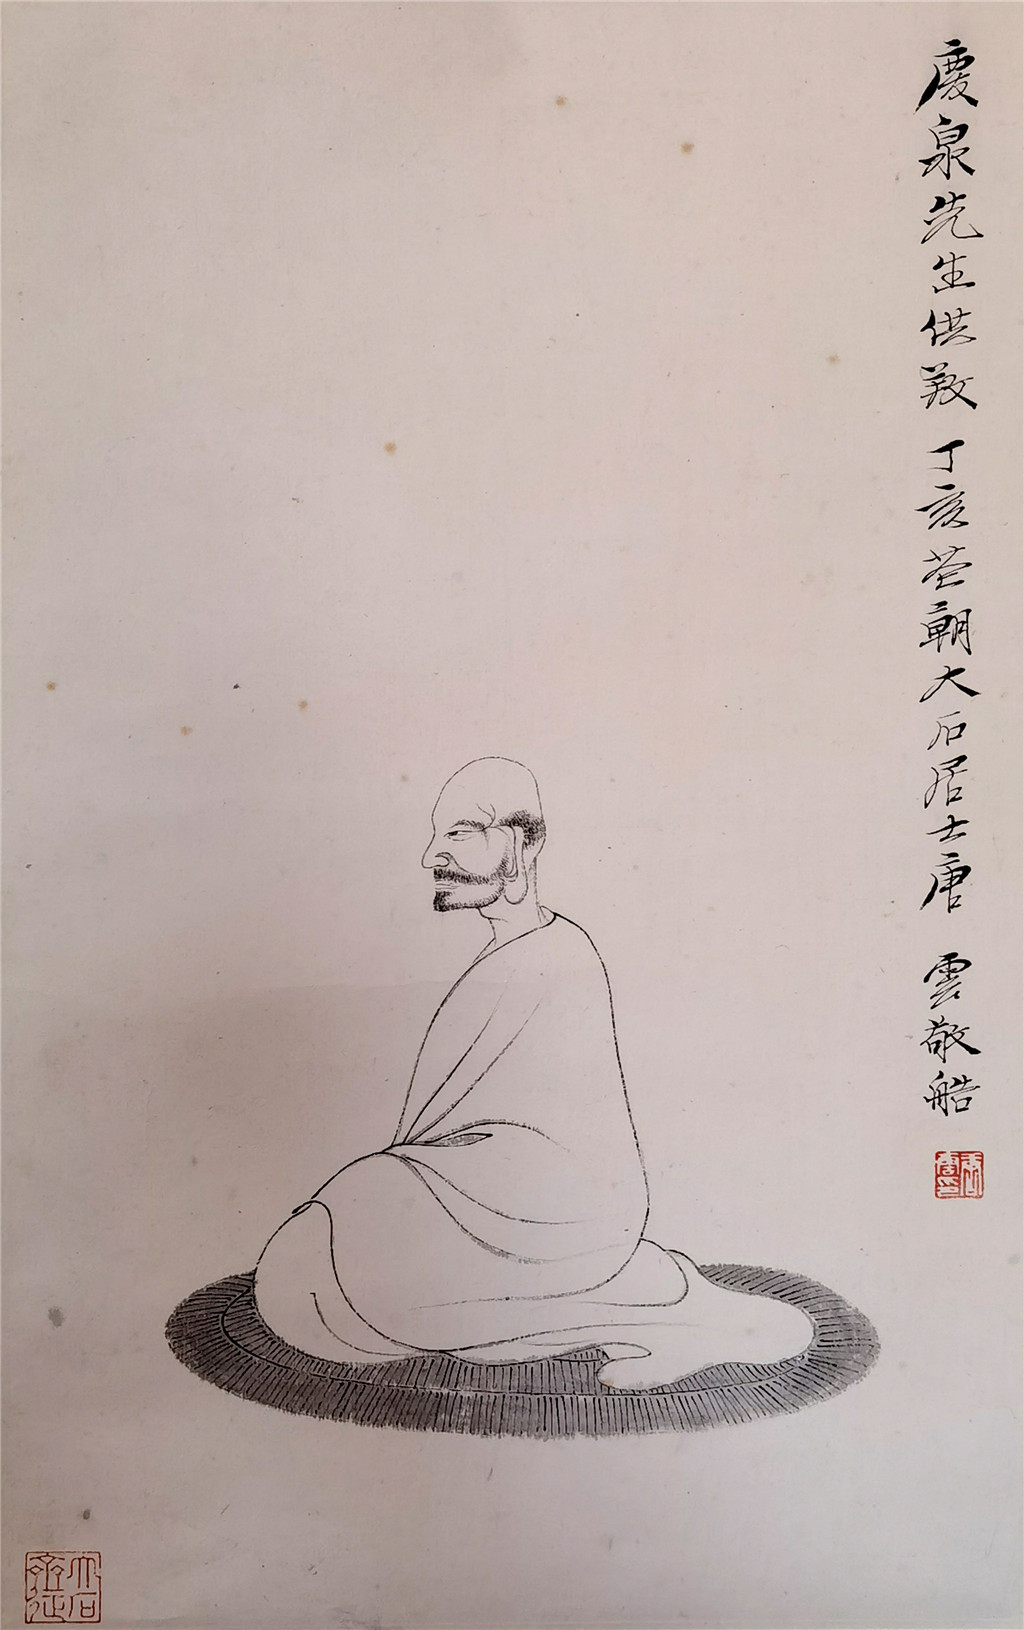 慶泉先生供養 丁亥花朝大石居士唐 雲敬艁